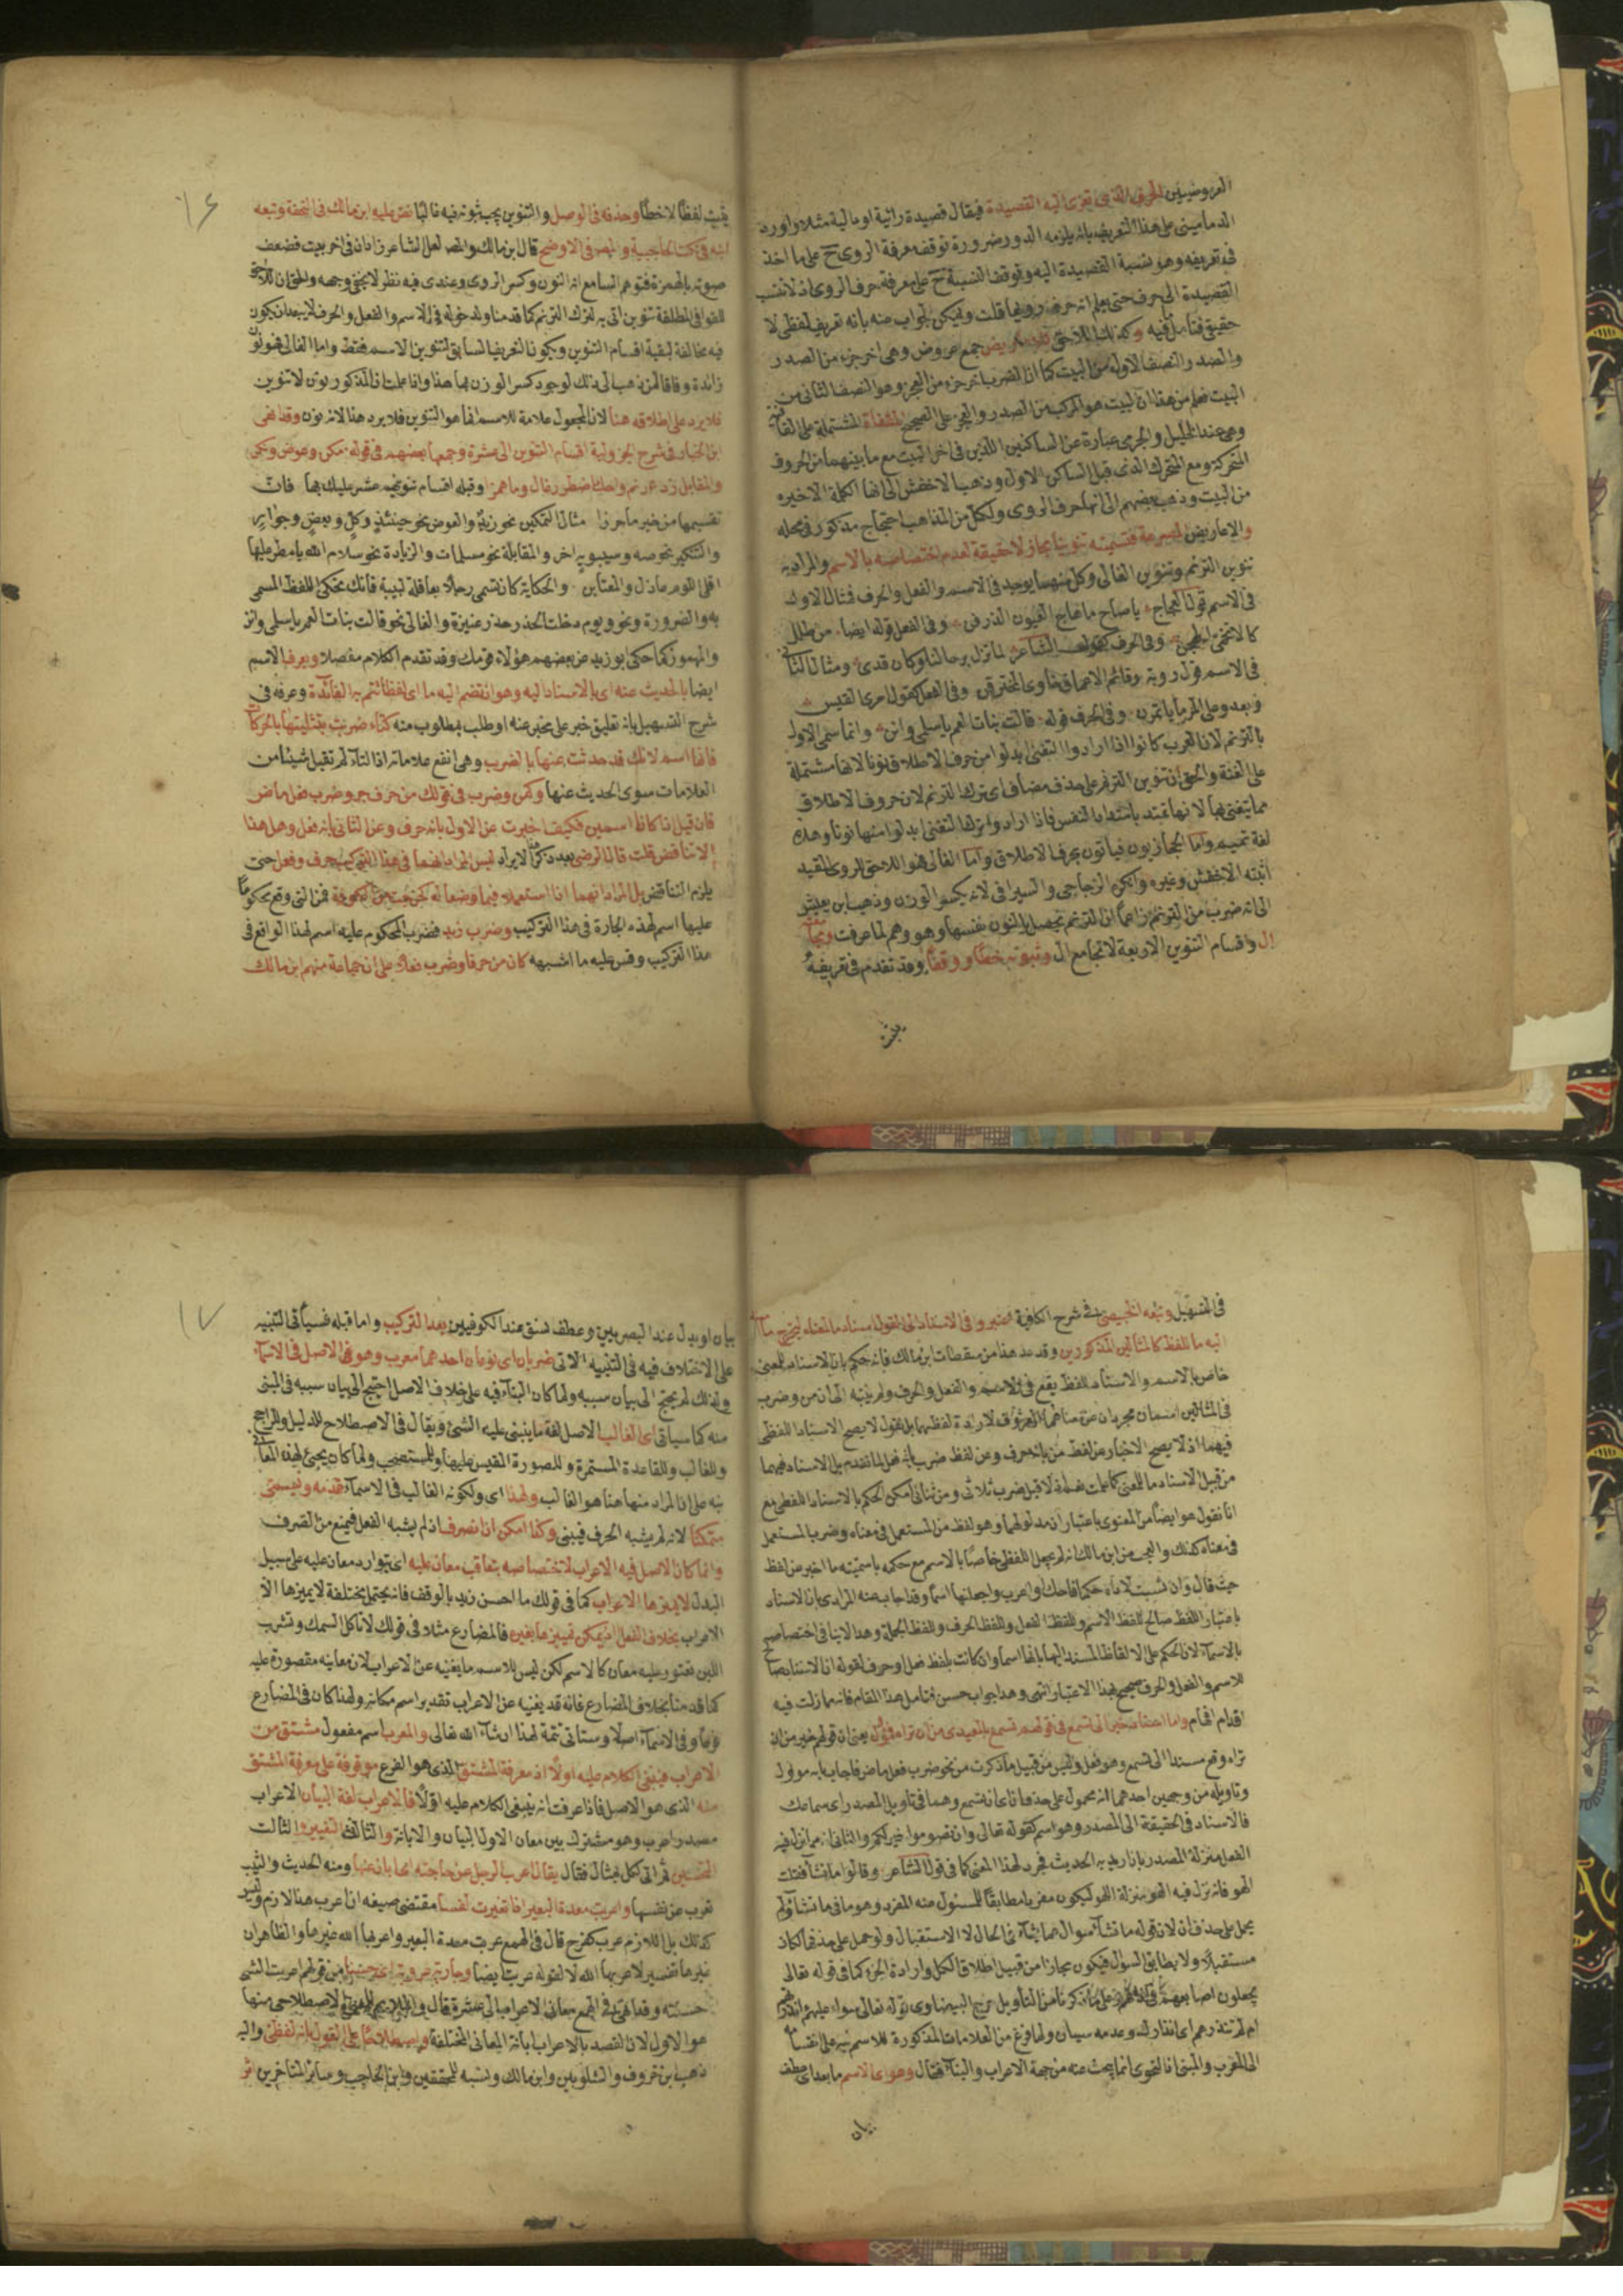 العروضيين الحرف الذي تعزى اليه القصيدة فيقال قصيدة رائية او مالية مثلا واورد
الدماميني على هذا التعريف بانه يلزمه الدور ضرورة توقف معرفة الروى ح على ما اخذ
في تعريفه وهو نسبة القصيدة اليه وتوقف النسبة ح على معرفة حرف الروى اذ لا تنسب
القصيدة الى حرف حتى يعلم انه حرف رويها قلت ويمكن الجواب منه بانه تعريف لفظى لا
حقيقى فتأمل فيه وكذلك اللاحق جمع عروض وهى اخر جزء من الصدر
والصدر النصف الاول من البيت كما ان الضرب اخر جزء من العجز وهو النصف الثانى من
البيت فعلم من هذا ان البيت هو المركب من الصدر والعجز على الصحيح المقفاة المشتملة على القافية
وهى عند الخليل والجرمى عبارة عن الساكنين اللذين فى اخر البيت مع ما بينهما من الحروف
المتحركة ومع المتحرك الذى قبل الساكن الاول وذهب الاخفش الى انها الكلمة الاخيرة
من البيت وذهب بعضهم الى انها حرف الروى ولكل من المذاهب احتجاج مذكور فى محله
والاعاريض المصرعة فتسميته تنوينا مجاز لا حقيقة لعدم اختصاصه بالاسم والمراد به
تنوين الترنم وتنوين الغالى وكل منهما يوجد فى الاسم والفعل والحرف فمثال الاول
فى الاسم قول العجاج يا صاح ما هاج العيون الذرفن وفى الفعل قوله ايضا من طلل
كالاتحمى انهجن وفى الحرف كقول الشاعر لما تزل برحالنا وكان قدن ومثال الثانى
فى الاسم قول روبة وقاتم الاعماق خاوى المخترقن وفى الفعل كقول امرى القيس
ويعدو على المرء ما ياتمرن وفى الحرف قوله قالت بنات العم يا سلمى وانن وانما سمى الاول
بالترنم لان العرب كانوا اذا ارادوا التغنى ابدلوا من حرف الاطلاق نونا لانها مشتملة
على الغنة والحق ان تنوين الترنم على حذف مضاف اى ترك الترنم لان حروف الاطلاق
مما يتغنى بها لانها تمتد بامتداد النفس فاذا ارادوا ترك التغنى ابدلوا منها نونا وهذه
لغة تميم واما الحجازيون فياتون بحرف الاطلاق واما الغالى فهو اللاحق للروى المقيد
اثبته الاخفش وغيره وانكره الزجاجى والسيرافى لانه يكسر الوزن وذهب ابن يعيش
الى انه ضرب من الترنم زاعما ان الترنم يحصل بالنون نفسها وهو وهم لما عرفت
ال واقسام التنوين الاربعة لا تجامع ال وثبوته خطا ووقفا وقد تقدم فى تعريفه
يثبت
١٦
يثبت لفظا لا خطا وحذفه فى الوصل والتنوين يجب ثبوته فيه غالبا نص عليه ابن مالك فى التحفة وتبعه
ابنه فى نكت الحاجبية والمص فى الاوضح قال ابن مالك والمص لعل الشاعر زاد ان فى اخر بيت فضعف
صوته بالهمزة فتوهم السامع انه النون وكسر الروى وعندى فيه نظر لا يخفى وجهه والحق ان اللاحق
للقوافى المطلقة تنوين اتى به لترك الترنم كما قدمنا ولدخوله فى الاسم والفعل والحرف لا يبعد ان يكون
فيه مخالفة لبقية اقسام التنوين ويكون التعريف السابق لتنوين الاسم فقط واما الغالى فهو نون
زائدة وفاقا لمن ذهب الى ذلك لوجود كسر الوزن بها هذا وانما علمت ان المذكور نون لا تنوين
فلا يرد على اطلاقه هنا لان المجعول علامة للاسم انما هو التنوين فلا يرد هذا لانه نون وقد انهى
ابن الخباز فى شرح الجزولية اقسام التنوين الى عشرة وجمعها بعضهم فى قوله مكن وعوض ونكر
والمقابل زد رنم واحك اضطرر غال وما همزا وقبله اقسام تنوينهم عشر عليك بها فان
تقسيمها من خير ما حرزا مثال التمكين نحو زيد والعوض نحو حينئذ وكل وبعض وجوار
والتنكير نحو صه وسيبويه اخر والمقابلة نحو مسلمات والزيادة نحو سلام الله يا مطر عليها
اقلى اللوم عاذل والعتابن والحكاية كان تسمى رجلا بعاقلة لبيبة فانك تحكى اللفظ المسمى
به والضرورة ونحو ويوم دخلت الخدر خدر عنيزة والغالى نحو قالت بنات العم يا سلمى وانن
والمهموز كما حكى ابو زيد عن بعضهم هؤلاء قومك وقد تقدم الكلام مفصلا ويعرف الاسم
ايضا بالحديث عنه اى بالاسناد اليه وهو ان تضم اليه ما اى لفظا تتم به الفائدة وعرفه فى
شرح التسهيل بانه تعليق خبر على مخبر عنه او طلب بمطلوب منه كتاء ضربت بتثليثها بالحركات
فانها اسم لانك قد حدثت عنها بالضرب وهى انفع علاماته اذ التاء لم تقبل شيئا من
العلامات سوى الحديث عنها وكمن وضرب فى قولك من حرف جر وضرب فعل ماض
فان قيل اذا كانا اسمين فكيف اخبرت عن الاول بانه حرف وعن الثانى بانه فعل وهل هذا
الا تناقض قلت قال الرضى بعد ذكر الايراد ليس المراد انهما فى هذا التركيب حرف وفعل حتى
يلزم التناقض بل المراد انهما اذا استعملا فيما وضعا له فمن التى وقع محكوما
عليها اسم لهذه الجارة فى هذا التركيب وضرب زيد فضرب المحكوم عليه اسم لهذا الواقع فى
هذا التركيب وقس عليه ما اشبهه كان من حرفا وضرب فعلا على ان جماعة منهم ابن مالك
فى التسهيل وتبعه الخبيصى فى شرح الكافية اعتبروا فى الاسناد
اليه ما للفظ كالمثالين المذكورين وقد عد هذا من سقطات ابن مالك فانه حكم بان الاسناد المعنى
خاص بالاسم والاسناد للفظ يقع فى الاسم والفعل والحرف ولم ينتبه الى ان من وضرب
فى المثالين اسمان مجردان عن معناهما لارادة لفظهما بل نقول لا يصح الاسناد اللفظى
فيهما اذ لا يصح الاخبار عن لفظ من بانه حرف وعن لفظ ضرب بانه فعل لما تقدم بل الاسناد فيهما
من قبيل الاسناد ما للمعنى كما علمت ضرب ثلاثى ومن ثنائى امكن الحكم بالاسناد اللفظى مع
انا نقول هو ايضا من المعنوى باعتبار ان مدلولهما وهو لفظ من المستعمل فى معناه وضرب المستعمل
فى معناه كذلك والعجب من ابن مالك انه لم يجعل اللفظى خاصا بالاسم مع حكمه باسمية ما اخبر عن لفظه
حيث قال وان نسبت لاداة حكما فاحك او اعرب واجعلنها اسما وقد اجاب عنه المرادى بان الاسناد
باعتبار اللفظ صالح للفظ الاسم وللفظ الفعل وللفظ الحرف وللفظ الجملة وهذا لا ينافى اختصاصه
بالاسماء لان الحكم على الالفاظ المسند اليها بانها اسما وان كانت بلفظ فعل او حرف فقوله ان الاسناد صالح
للاسم والفعل والحرف صحيح بهذا الاعتبار انتهى وهذا جواب حسن فتامل هذا المقام فانه مما زلت فيه
اقدام اقوام واما تسمع فى قولهم تسمع بالمعيدى خير من ان تراه فمؤول يعنى ان قولهم خير من ان
تراه وقع مسندا الى تسمع وهو فعل وليس من قبيل ما ذكرت من نحو ضرب فعل ماض فاجاب بانه مؤول
وتاويله من وجهين احدهما انه محمول على حذف ان اى ان تسمع وهما فى تاويل المصدر اى سماعك
فالاسناد فى الحقيقة الى المصدر وهو اسم كقوله تعالى وان تصوموا خير لكم والثانى انه مما نزل فيه
الفعل منزلة المصدر بان اريد به الحدث فجرد لهذا المعنى كما فى قول الشاعر وقالوا ما تشاء فقلت
الهو فانه نزل فيه الهو منزلة اللهو ليكون مفردا مطابقا للمسئول عنه المفرد وهو ما فى ما تشاء ولم
يحمل على حذف ان لان قوله ما تشاء سؤال عما يشاء فى الحال لا الاستقبال ولو حمل على حذفها لكان
مستقبلا ولا يطابق السؤال فيكون مجازا من قبيل اطلاق الكل وارادة الجزء كما فى قوله تعالى
يجعلون اصابعهم فى اذانهم وعلى ما ذكرنا من التأويل خرج البيضاوى قوله تعالى سواء عليهم أانذرتهم
ام لم تنذرهم اى انذارك وعدمه سيان ولما فرغ من العلامات المذكورة للاسم نبه على انقسامه
الى المعرب والمبنى اذ النحوى انما يبحث عنه من جهة الاعراب والبناء فقال وهو اى الاسم ما بعد اى عطف
بيان
١٧
بيان او بدل عند البصريين وعطف نسق عند الكوفيين بعد التركيب واما قبله فسيأتى التنبيه
على الاختلاف فيه فى التنبيه الاتى ضربان اى نوعان احدهما معرب وهو الاصل فى الاسماء
ولذلك لم يحتج الى بيان سببه ولما كان البناء فيه على خلاف الاصل احتيج الى بيان سببه فى المبنى
منه كما سياتى اى الغالب الاصل لغة ما ينبنى عليه الشئ ويقال فى الاصطلاح للدليل وللراجح
وللغالب وللقاعدة المستمرة وللصورة المقيس عليها وللمستصحب ولما كان يجئ لهذه المعانى
نبه على ان المراد منها هنا هو الغالب ولهذا اى ولكونه الغالب فى الاسماء قدمه ويسمى
متمكنا لانه لم يشبه الحرف فيبنى وكذا امكن ان انصرف اذ لم يشبه الفعل فيمنع من الصرف
وانما كان الاصل فيه الاعراب لاختصاصه بتعاقب معان عليه اى توارد معان عليه على سبيل
البدل لا يميزها الا الاعراب كما فى قولك ما احسن زيد بالوقف فانه يحتمل مختلفة لا يميزها الا
الاعراب بخلاف الفعل اذ يمكن تمييزها بغيره فالمضارع مثلا فى قولك لا تاكل السمك وتشرب
اللبن تعتور عليه معان كالاسم لكن ليس للاسم ما يغنيه عن الاعراب لان معانيه مقصورة عليه
كما قدمنا بخلاف المضارع فانه قد يغنيه عن الاعراب تقدير اسم مكانه ولهذا كان فى المضارع
فرعا وفى الاسماء اصلا وستاتى تتمة لهذا ان شاء الله تعالى والمعرب اسم مفعول مشتق من
الاعراب فينبغى الكلام عليه اولا اذ معرفة المشتق الذى هو الفرع موقوفة على معرفة المشتق
منه الذى هو الاصل فاذا عرفت انه ينبغى الكلام عليه اولا فالاعراب لغة البيان الاعراب
مصدر اعرب وهو مشترك بين معان الاول البيان والابانة والثانى التغيير والثالث
التحسين ثم اتى لكل بمثال فقال يقال اعرب الرجل عن حاجته اى ابان عنها ومنه الحديث والثيب
تعرب عن نفسها واعربت معدة البعير اذا تغيرت لفساد مقتضى صنيعه ان اعرب هنا لازم وليس
كذلك بل اللازم عرب كفرح قال فى الهمع عربت معدة البعير واعربها الله غيرها والظاهر ان
غيرها تفسير لاعربها الله لا لقوله عربت ايضا وجارية عروبة اى حسناء من قولهم اعربت الشئ
حسنته وقد انهى فى الهمع معانى الاعراب الى عشرة قال والمناسب للمعنى الاصطلاحى منها
هو الاول لان القصد بالاعراب ابانة المعانى المختلفة واصطلاحا على القول بانه لفظى واليه
ذهب ابن خروف والشلوبين وابن مالك ونسبه للمحققين وابن الحاجب وسائر المتاخرين اثر